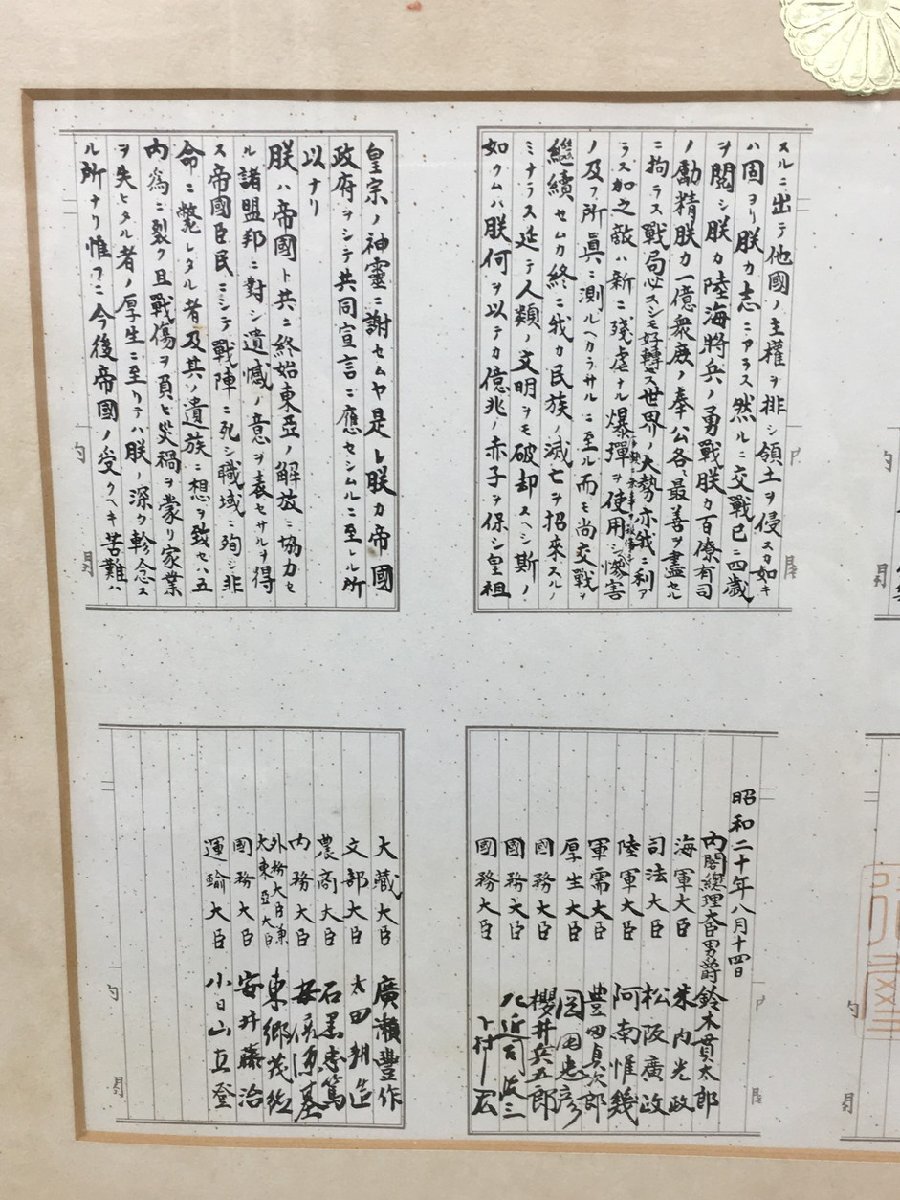 スルニ出テ他國ノ主權ヲ排シ領土ヲ侵スカ如キ
ハ固ヨリ朕カ志ニアラス然ルニ交戰已ニ四歳
ヲ閲シ朕カ陸海將兵ノ勇戰朕カ百僚有司
ノ勵精朕カ一億衆庶ノ奉公各〻最善ヲ盡セル
ニ拘ラス戰局必スシモ好轉セス世界ノ大勢亦我ニ利ア
ラス加之敵ハ新ニ殘虐ナル爆彈ヲ使用シ慘害
ノ及フ所眞ニ測ルヘカラサルニ至ル而モ尚交戰ヲ
繼續セムカ終ニ我カ民族ノ滅亡ヲ招來スルノ
ミナラス延テ人類ノ文明ヲモ破却スヘシ斯ノ
如クムハ朕何ヲ以テカ億兆ノ赤子ヲ保シ皇祖
皇宗ノ神靈ニ謝セムヤ是レ朕カ帝國
政府ヲシテ共同宣言ニ應セシムルニ至レル所
以ナリ
朕ハ帝國ト共ニ終始東亞ノ解放ニ協力セ
ル諸盟邦ニ對シ遺憾ノ意ヲ表セサルヲ得
ス帝國臣民ニシテ戰陣ニ死シ職域ニ殉シ非
命ニ斃レタル者及其ノ遺族ニ想ヲ致セハ五
内爲ニ裂ク且戰傷ヲ負ヒ災禍ヲ蒙リ家業
ヲ失ヒタル者ノ厚生ニ至リテハ朕ノ深ク軫念ス
ル所ナリ惟フニ今後帝國ノ受クヘキ苦難ハ
昭和二十年八月十四日
内閣總理大臣男爵 鈴木貫太郎
海軍大臣 米内光政
司法大臣 松阪廣政
陸軍大臣 阿南惟幾
軍需大臣 豊田貞次郎
厚生大臣 岡田忠彦
國務大臣 櫻井兵五郎
國務大臣 左近司政三
國務大臣 下村宏
大藏大臣 廣瀬豐作
文部大臣 太田耕造
農商大臣 石黒忠篤
内務大臣 安倍源基
外務大臣兼大東亞大臣 東郷茂徳
國務大臣 安井藤治
運輸大臣 小日山直登